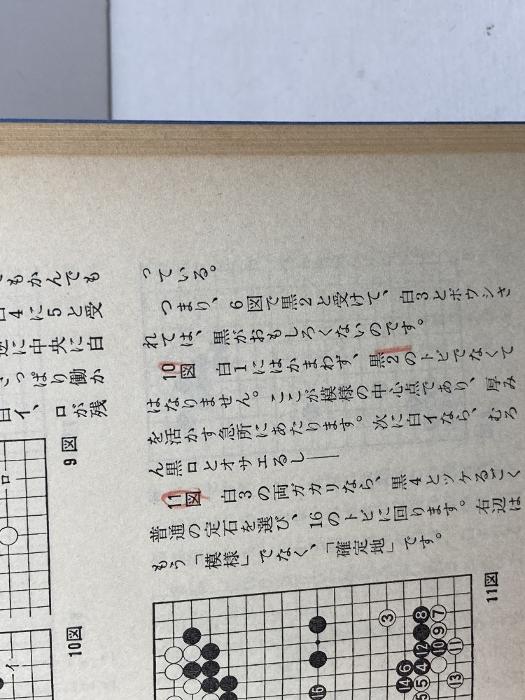 っている。
つまり、6図で黒2と受けて、白3とボウシさ
れては、黒がおもしろくないのです。
10図 白1にはかまわず、黒2のトビでなくて
はなりません。ここが模様の中心点であり、厚み
を活かす急所にあたります。次に白イなら、むろ
ん黒ロとオサエるし——
11図 白3の両ガカリなら、黒4とツケるごく
普通の定石を選び、16のトビに回ります。右辺は
もう「模様」でなく、「確定地」です。
もかんでも
4に5と受
に中央に白
っぱり働か
イ、ロが残
9図
ロ
10図
イ
11図
3
8
7
12
9
10
11
6
14
4
5
13
16